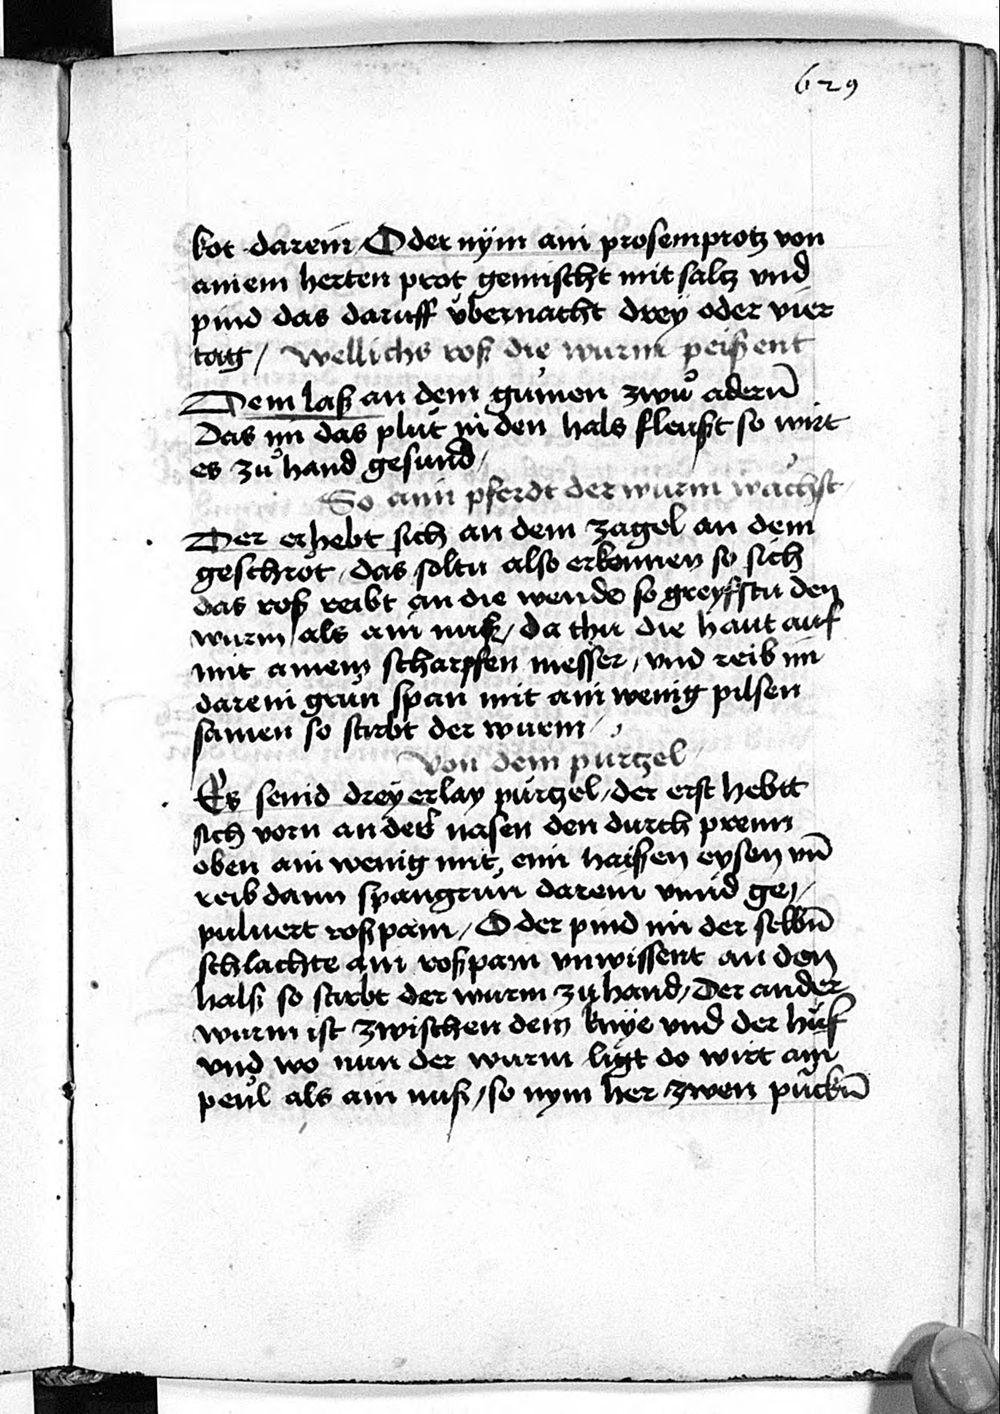 629
kot darein / Oder nÿm ain prosemprotz von
ainem herten prot gemischt mit saltz vnd
pind das daruff vbernacht dreÿ oder vier
tag / Wellichs roß die wurm peißent
Dem laß an dem gůmen zwů adernn̄
Das im das plůt in den hals fleußt so wirt
es zů hand gesund /
So ain pferdt der wurm wachst /
Der erhebt sich an dem zagel an dem
geschrot / das soltu also erkennen so sich
das roß reibt an die wende so greyffstu den
wurm / als ain nuß / da thu die haut auf
mit ainem scharpfen messer / vnd reib im
darein grün span mit ain wenig pilsen
samen so stirbt der wurm /
Von dem purtzel /
Es seind dreÿerlay pürtzel / der erst hebtt
sich vorn an der nasen den durch prenn
oben ain wenig mit eim haissen eysen vn̄
reib dann spangrün darein vnnd ge /
puluert roßpain / Oder pind im der selbn̄
schlachte ain roßpain vnwissent an den
halß so stirbt der wurm zů hand / Der ander
wurm ist zwischen dem knÿe vnd der hůf
vnd wo nun der wurm ligt do wirt ain
peul als ain nuß / so nym her zwen pückn̄